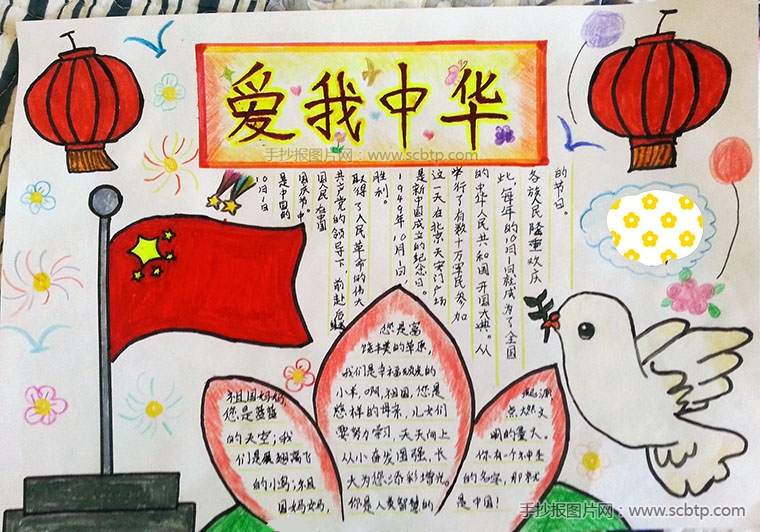 爱我中华
手抄报图片网:www.scbtp.com
10月1日
是中国的
国庆节,中
国人民在
共产党的领导下,前赴后继
取得了人民革命的伟大
胜利。
1949年10月1日
是新中国成立的纪念日。
这一天在北京天安门广场
举行了有数十万军民参加
的中华人民共和国开国大典。从
此每年的10月1日就成为了全国
各族人民隆重欢庆
的节日。
祖国妈妈,
您是蓝蓝
的天空;我
们是展翅高飞
的小鸟;祖
国妈妈,
您是富
饶丰美的草原,
我们是幸福的
小羊。啊,祖国,您是
慈祥的母亲,儿女们
要努力学习,天天向上
从小奋发图强、长
大为您添彩增光。
你是人类智慧的
起源
点燃文
明的星火。
你有一个神圣
的名字,那就
是中国!
手抄报图片网:www.scbtp.com